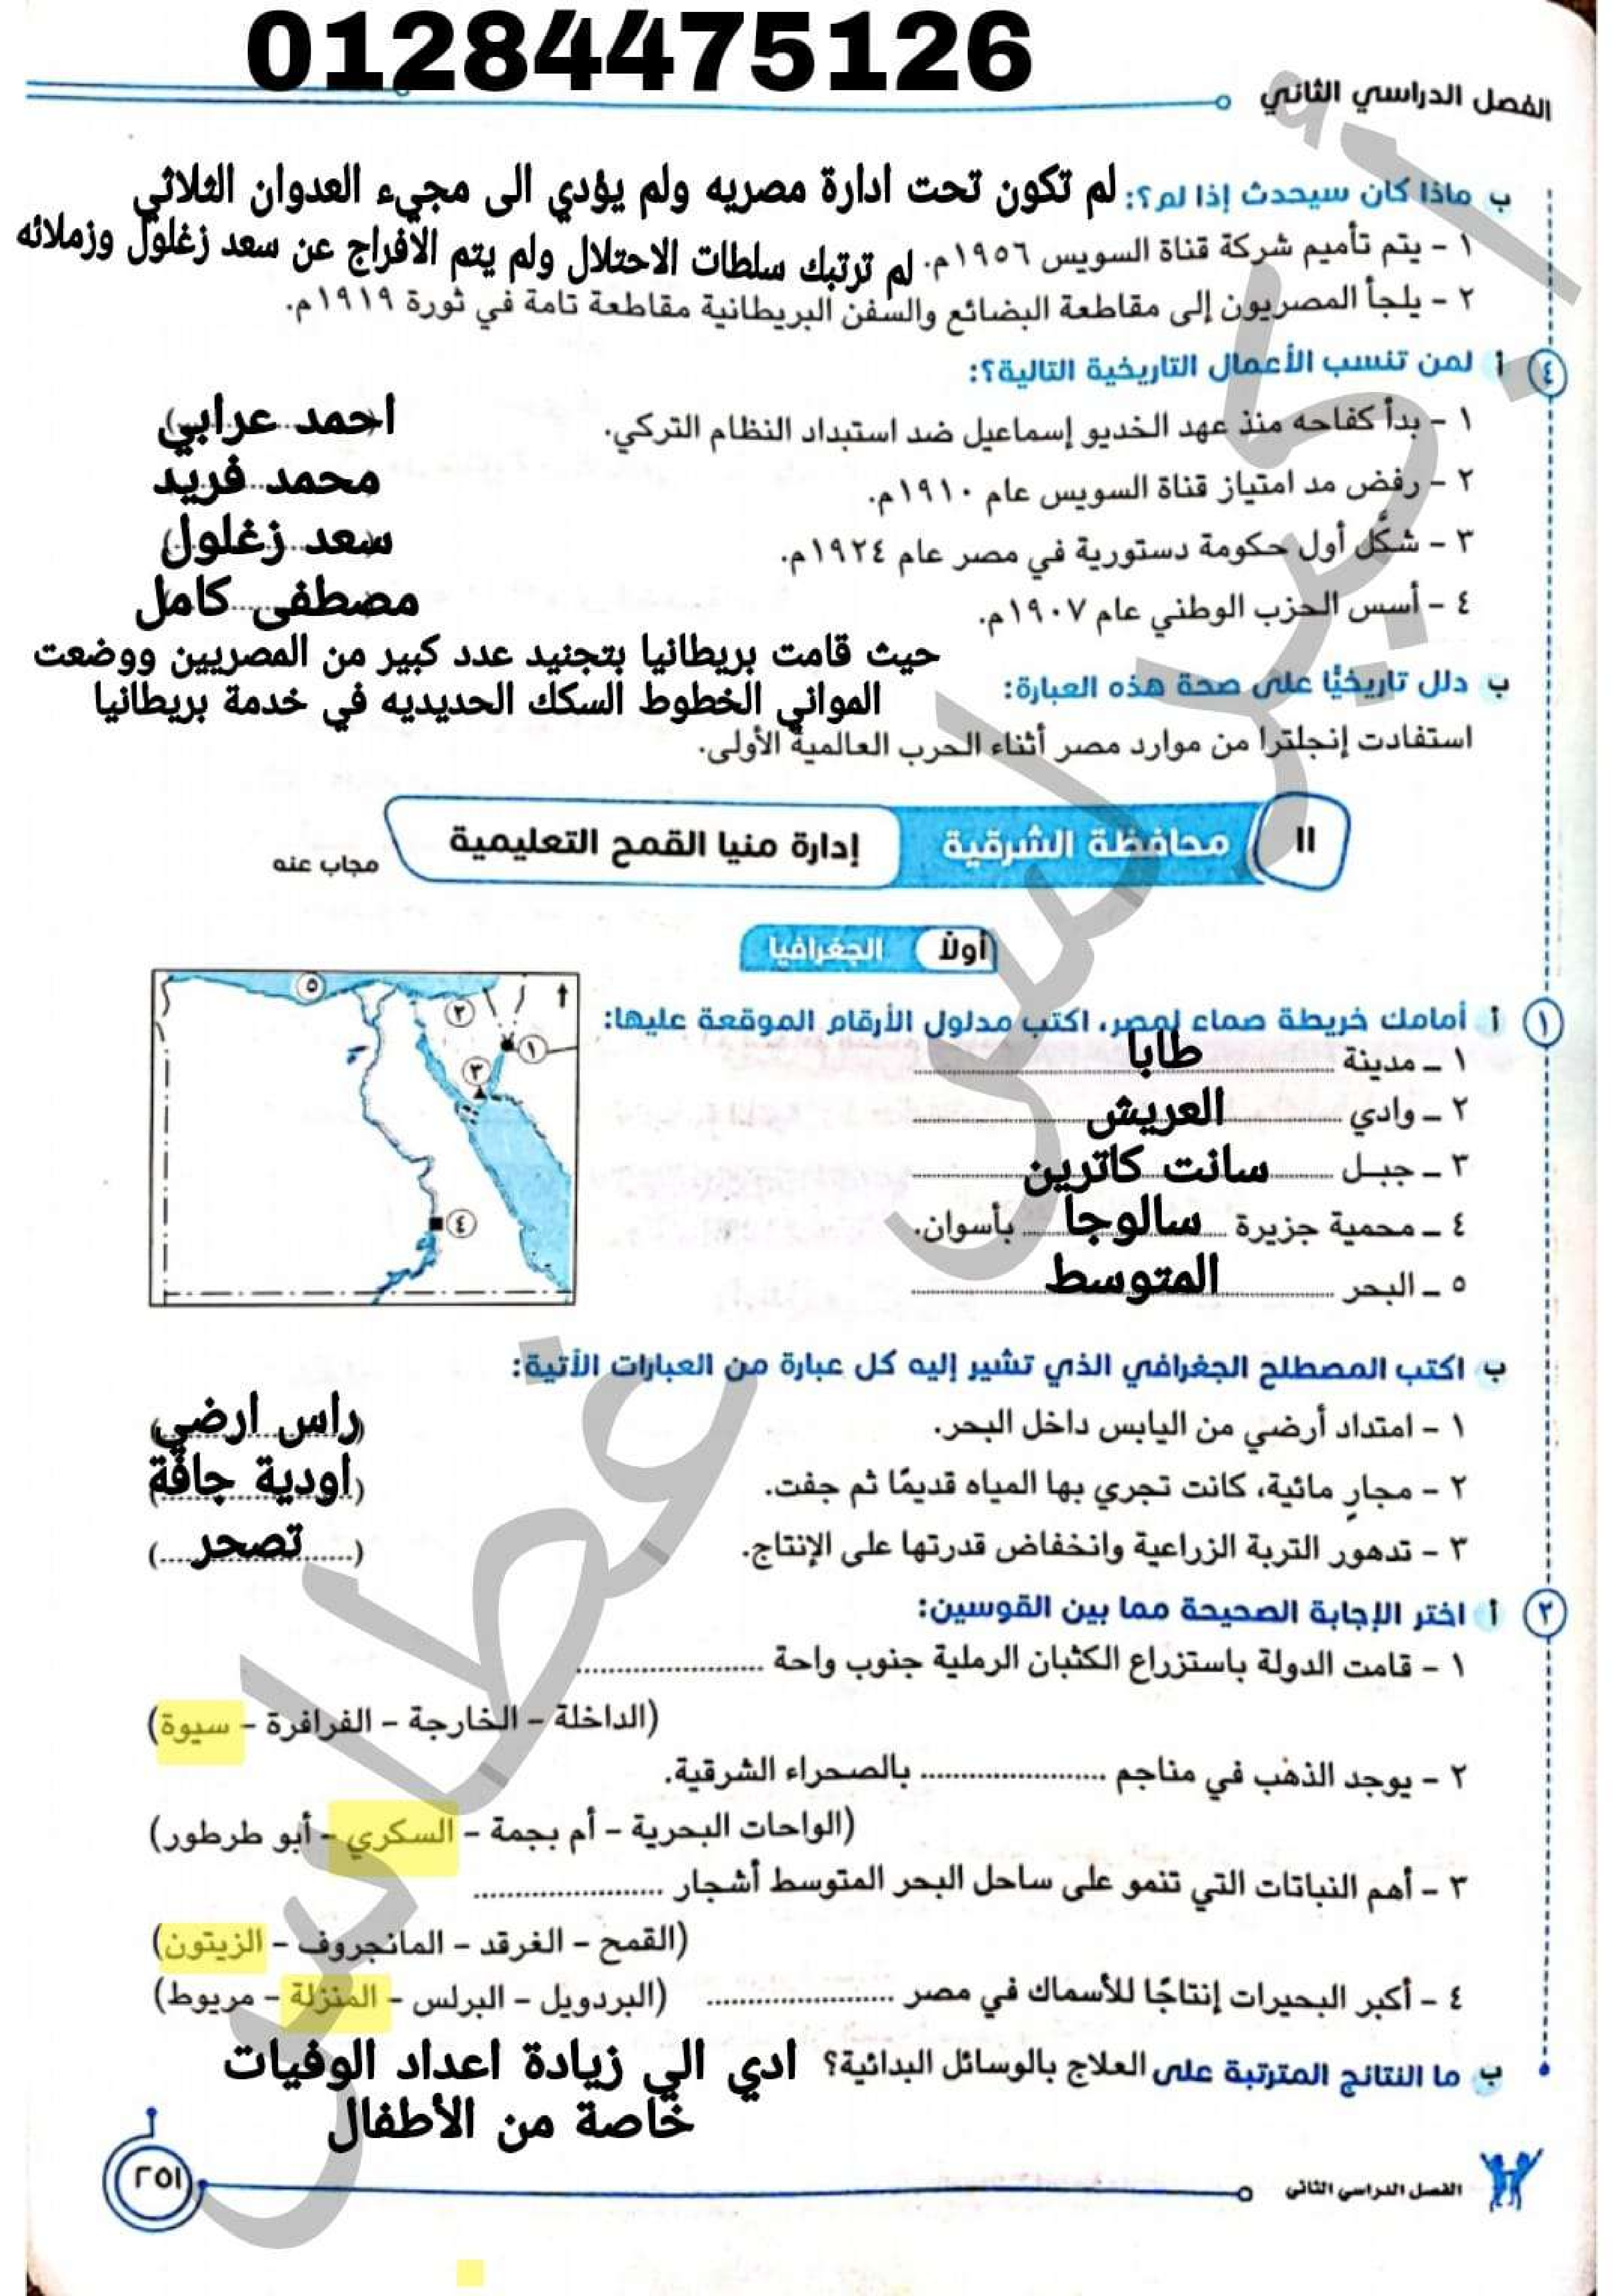 01284475126
الفصل الدراسي الثاني
ب ماذا كان سيحدث إذا لم؟: لم تكون تحت ادارة مصريه ولم يؤدي الى مجيء العدوان الثلاثي
١ - يتم تأميم شركة قناة السويس ١٩٥٦م. لم ترتبك سلطات الاحتلال ولم يتم الافراج عن سعد زغلول وزملائه
٢ - يلجأ المصريون إلى مقاطعة البضائع والسفن البريطانية مقاطعة تامة في ثورة ١٩١٩م.
٤ أ لمن تنسب الأعمال التاريخية التالية؟:
١ - بدأ كفاحه منذ عهد الخديو إسماعيل ضد استبداد النظام التركي. (احمد عرابي)
٢ - رفض مد امتياز قناة السويس عام ١٩١٠م. محمد فريد
٣ - شكَّل أول حكومة دستورية في مصر عام ١٩٢٤م. (سعد زغلول)
٤ - أسس الحزب الوطني عام ١٩٠٧م. مصطفى كامل
حيث قامت بريطانيا بتجنيد عدد كبير من المصريين ووضعت
ب دلل تاريخيًّا على صحة هذه العبارة: المواني الخطوط السكك الحديديه في خدمة بريطانيا
استفادت إنجلترا من موارد مصر أثناء الحرب العالمية الأولى.
١١ محافظة الشرقية إدارة منيا القمح التعليمية مجاب عنه
أولًا الجغرافيا
١ أ أمامك خريطة صماء لمصر، اكتب مدلول الأرقام الموقعة عليها:
١ ـ مدينة طابا
٢ ـ وادي العريش
٣ ـ جبل سانت كاترين
٤ ـ محمية جزيرة سالوجا بأسوان.
٥ ـ البحر المتوسط
٥
٢
١
٣
٤
ب اكتب المصطلح الجغرافي الذي تشير إليه كل عبارة من العبارات الأتية:
١ - امتداد أرضي من اليابس داخل البحر. (راس ارضي)
٢ - مجارٍ مائية، كانت تجري بها المياه قديمًا ثم جفت. (اودية جافة)
٣ - تدهور التربة الزراعية وانخفاض قدرتها على الإنتاج. (تصحر)
٢ أ اختر الإجابة الصحيحة مما بين القوسين:
١ - قامت الدولة باستزراع الكثبان الرملية جنوب واحة ......................
(الداخلة - الخارجة - الفرافرة - سيوة)
٢ - يوجد الذهب في مناجم ...................... بالصحراء الشرقية.
(الواحات البحرية - أم بجمة - السكري - أبو طرطور)
٣ - أهم النباتات التي تنمو على ساحل البحر المتوسط أشجار ......................
(القمح - الغرقد - المانجروف - الزيتون)
٤ - أكبر البحيرات إنتاجًا للأسماك في مصر ...................... (البردويل - البرلس - المنزلة - مريوط)
ب ما النتائج المترتبة على العلاج بالوسائل البدائية؟ ادي الي زيادة اعداد الوفيات
خاصة من الأطفال
الفصل الدراسي الثاني
٢٥١
أكبر لس غطاس